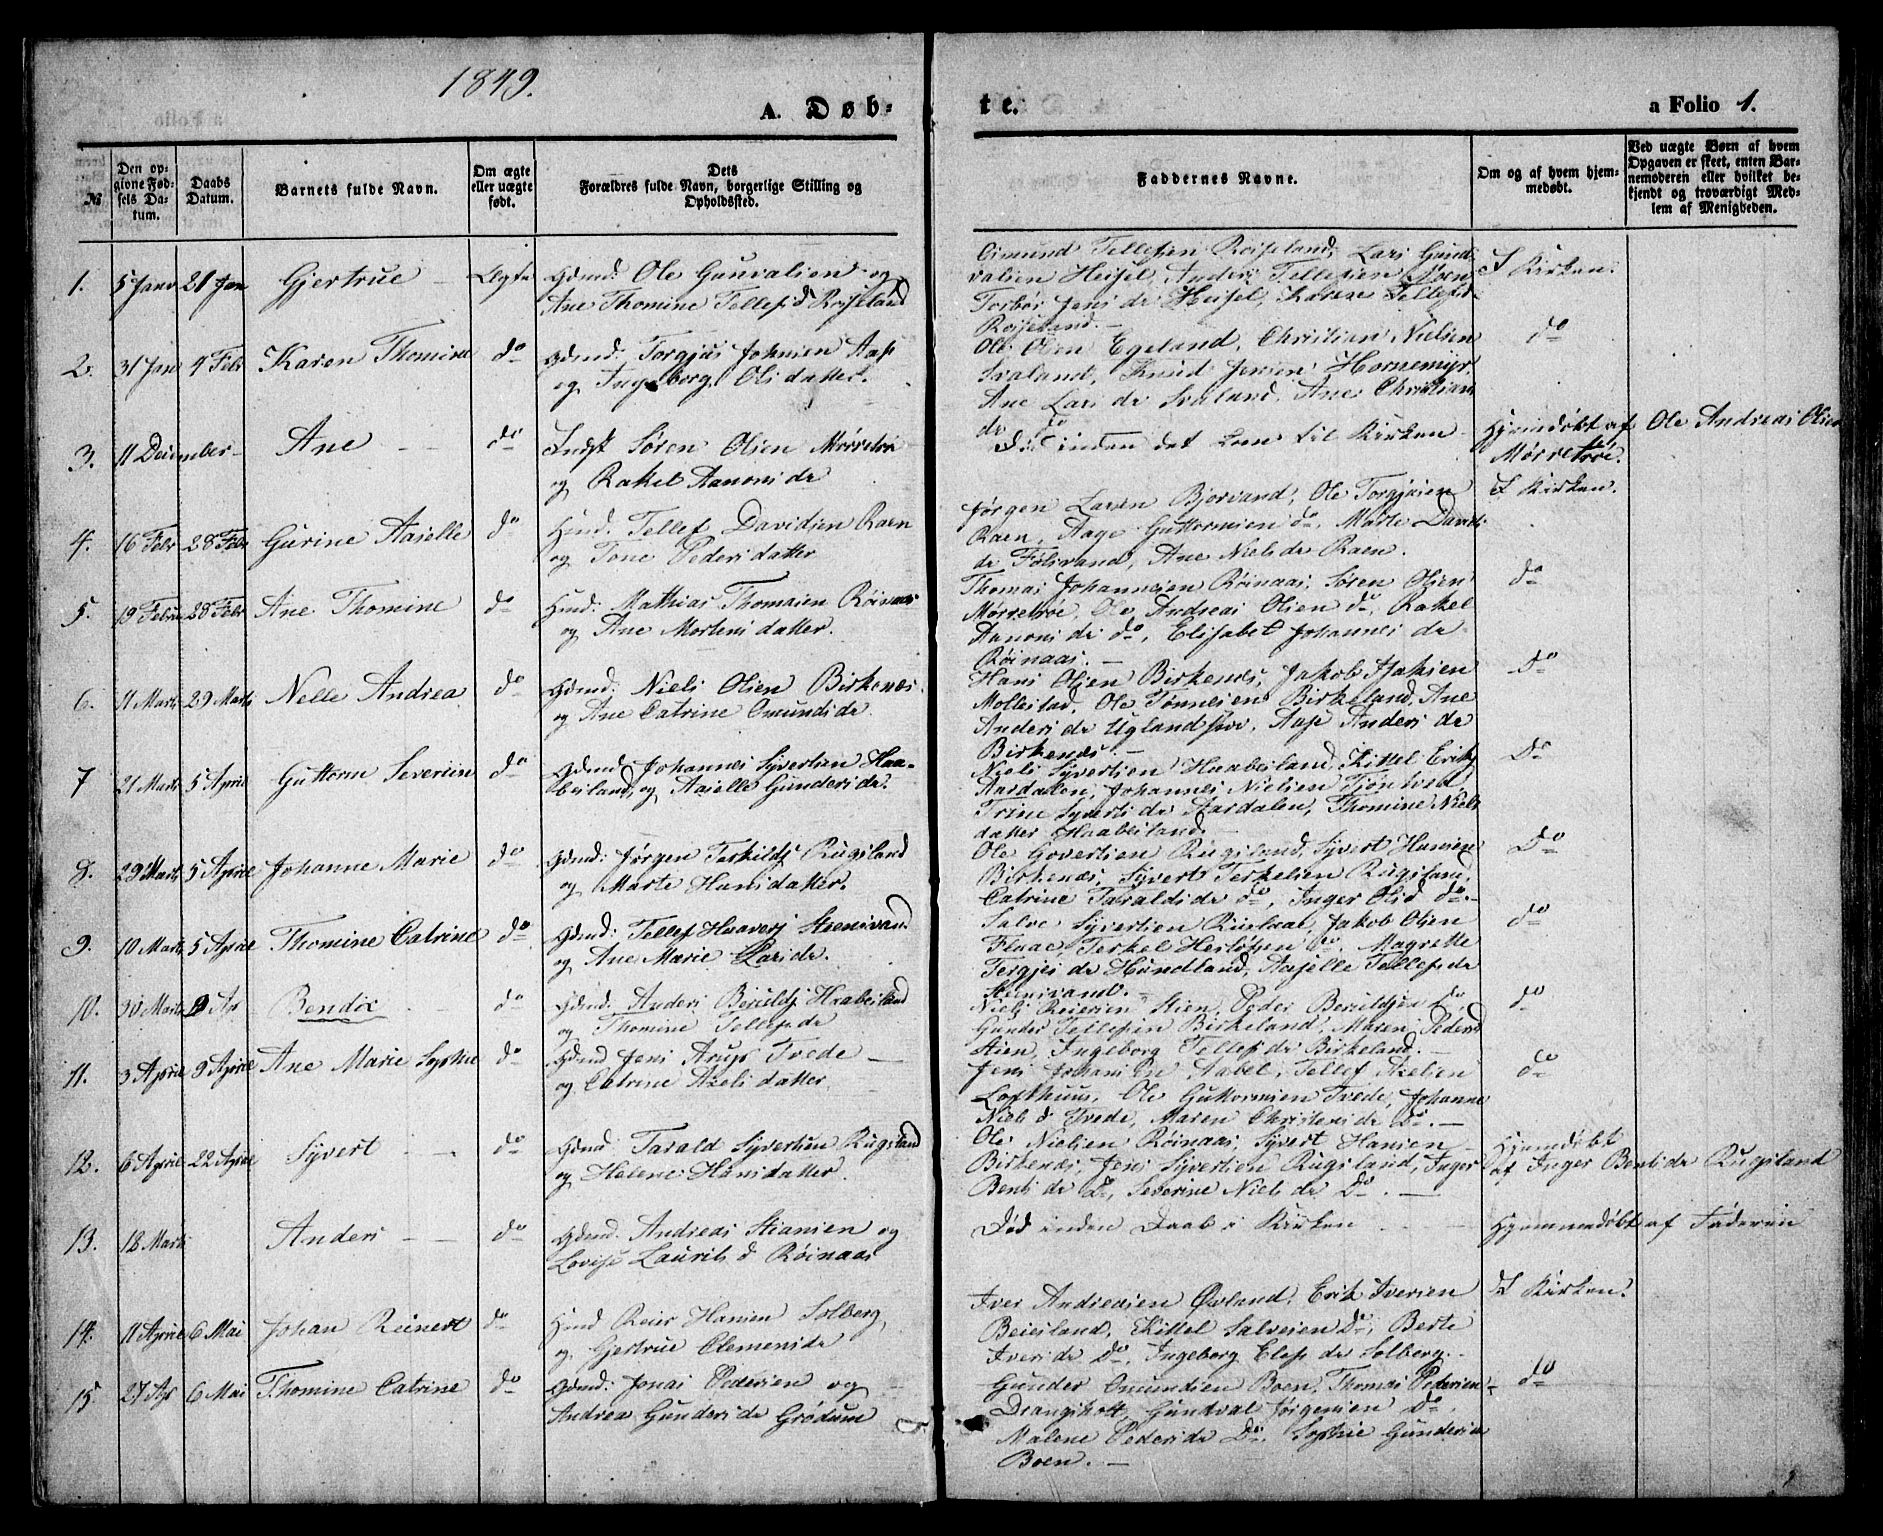 1849.
A. Døb-
te.
a Folio 1.
№
Den op-
givne Fød-
sels Da-
tum.
Daabs
Datum.
Barnets fulde Navn.
Om ægte
eller uægte
født.
Dets
Forældres fulde Navn, borgerlige Stilling og
Opholdssted.
Faddernes Navne.
Om og af hvem hjem-
medøbt.
Ved uægte Børn af hvem
Opgaven er skeet, enten Bar-
nemoderen eller hvilket be-
kjendt og troværdigt Med-
lem af Menigheden.
1. 5 Janv 21 Jan Gjertrue Ægte Gdmd: Ole Gunvalsen og
Ane Thomine Tellefsd Røiseland
Tellefsen Roiseland, Lars Gund
valsen Heisel, Anders Tellefsen Boen
Torbor Jens dr Heisel, Karen Tellefsd
Roiseland.
I Kirken.
2. 31 Jan 4 Febr Karen Thomine do Gdmd: Torgjus Johnsen Aas
og Ingeborg Olsdatter.
Ole Olsen Egeland, Christian Nielsen
Svaland, Knud Jensen Hornemyr,
Ane Lars dr Svaland, Ane Christians
dr do
do
3. 11 December Ane do Indst Søren Olsen Mørretroe
og Rakel Aanons dr
Død inden det kom til Kirken
Hjemdøbt af Ole Andreas Olsen
Mørretroe.
4. 16 Febr 28 Febr Gurine Aaselle do Hmd: Tellef Davidsen Raen
og Tone Peders datter
Jørgen Larsen Bjorvand, Ole Torgjusen
Raen, Aage Guttormsen do, Marte Davids
dr Følsvand, Ane Niels dr Raen.
I Kirken.
5. 19 Febru 28 Febr Ane Thomine do Hmd: Mathias Thomasen Røinaas
og Ane Mortens datter.
Thomas Johannesen Røinaas, Søren Olsen
Mørretroe, Ole Andreas Olsen do, Rakel
Aanons dr do, Elisabet Johannes dr
Røinaas.
do
6. 11 Marts 29 Marts Nelle Andrea do Gdmd: Niels Olsen Birkenes
og Ane Catrine Omunds dr
Hans Olsen Birkenes, Jakob Isaksen
Mollestad, Ole Tønnesen Birkeland, Ane
Anders dr Uglands, Aase Anders dr
Birkenes.
Do
7 21 Marts 5 April Guttorm Seversin do Gdmd: Johannes Syvertsen Haa-
beiland, og Aaselle Gunders dr.
Niels Syvertsen Haabesland, Kittel Eriks
Aardalen, Johannes Nielsen Tjønvold,
Trine Syverts dr Aardalen, Thomine Niels
datter Haabesland.
Do
8. 29 Marts 5 April Johanne Marie do Gdmd: Jørgen Terkilds Rugsland
og Marte Hansdatter.
Ole Govertsen Rugsland, Syvert Hansen
Birkenes, Syvert Terkelsen Rugsland,
Catrine Taralds dr do, Inger Olsd do.
Do
9. 10 Marts 5 April Thomine Catrine do Gdmd: Tellef Haavers Stensvand
og Ane Marie Lars dr.
Salve Syvertsen Rustraae, Jakob Olsen
Flaae, Terkel Herlofsen do, Magrette
Tergjes dr Hundland, Aaselle Tellefs dr
Stensvand.
do
10. 30 Marts Ap Bendix do Gdmd: Anders Beruldsen Haabesland
og Thomine Tellefs dr
Niels Reiersen Stien, Peder Beruldsen do
Gunder Tellefsen Birkeland, Maren Pedersd
Stien, Ingeborg Tellefs dr Birkeland.
do
11. 3 April 9 April Ane Marie Sophie do Gdmd Jens Arups Tvede
og Catrine Axels datter.
Jens Johansen Aabel, Tellef Axelsen
Lofthuus, Ole Guttormsen Tvede, Johanne
Niels d Tvede, Maren Christens dr Do.
do
12. 6 April 22 April Syvert do Gdmd Tarald Syvertsen Rugsland
og Helene Hansdatter.
Ole Nielsen Røinaas, Syvert Hansen
Birkenes, Jens Syvertsen Rugsland, Inger
Bents dr Do, Severine Niels dr Do.
Hjemdøbt
af Inger Bents dr Rugsland
13. 18 Marts Anders do Gdmd. Andreas Stiansen og
Lovise Laurits d Røinaas
Død inden Daab i Kirken
Hjemmedøbt af Faderen
14. 11 April 6 Mai Johan Reinert do Hmd Reier Hansen Solberg
og Gjertrue Clemens dr
Iver Andreasen Øvland, Erik Iversen
Beiesland, Kittel Salvesen Do, Berte
Ivers dr Do, Ingeborg Elefs dr Solberg.
I Kirken.
15 27 Ap 6 Mai Thomine Catrine do Gdmd: Jonas Pedersen og
Andrea Gunders dr Grødum
Gunder Omundsen Boen, Thomas Pedersen
Drangsholt, Gundval Jørgensen do,
Malene Peders dr Do, Sophie Gunders dr
Boen.
do